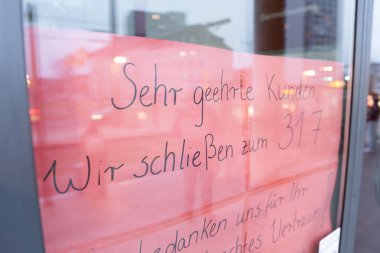 Sehr geehrte Kunden,
Wir schließen zum 31 7
bedanken uns für Ihr
Vertrauen!